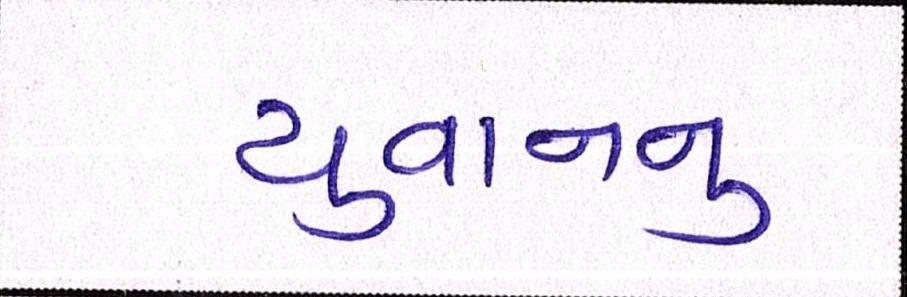 યુવાનનુ